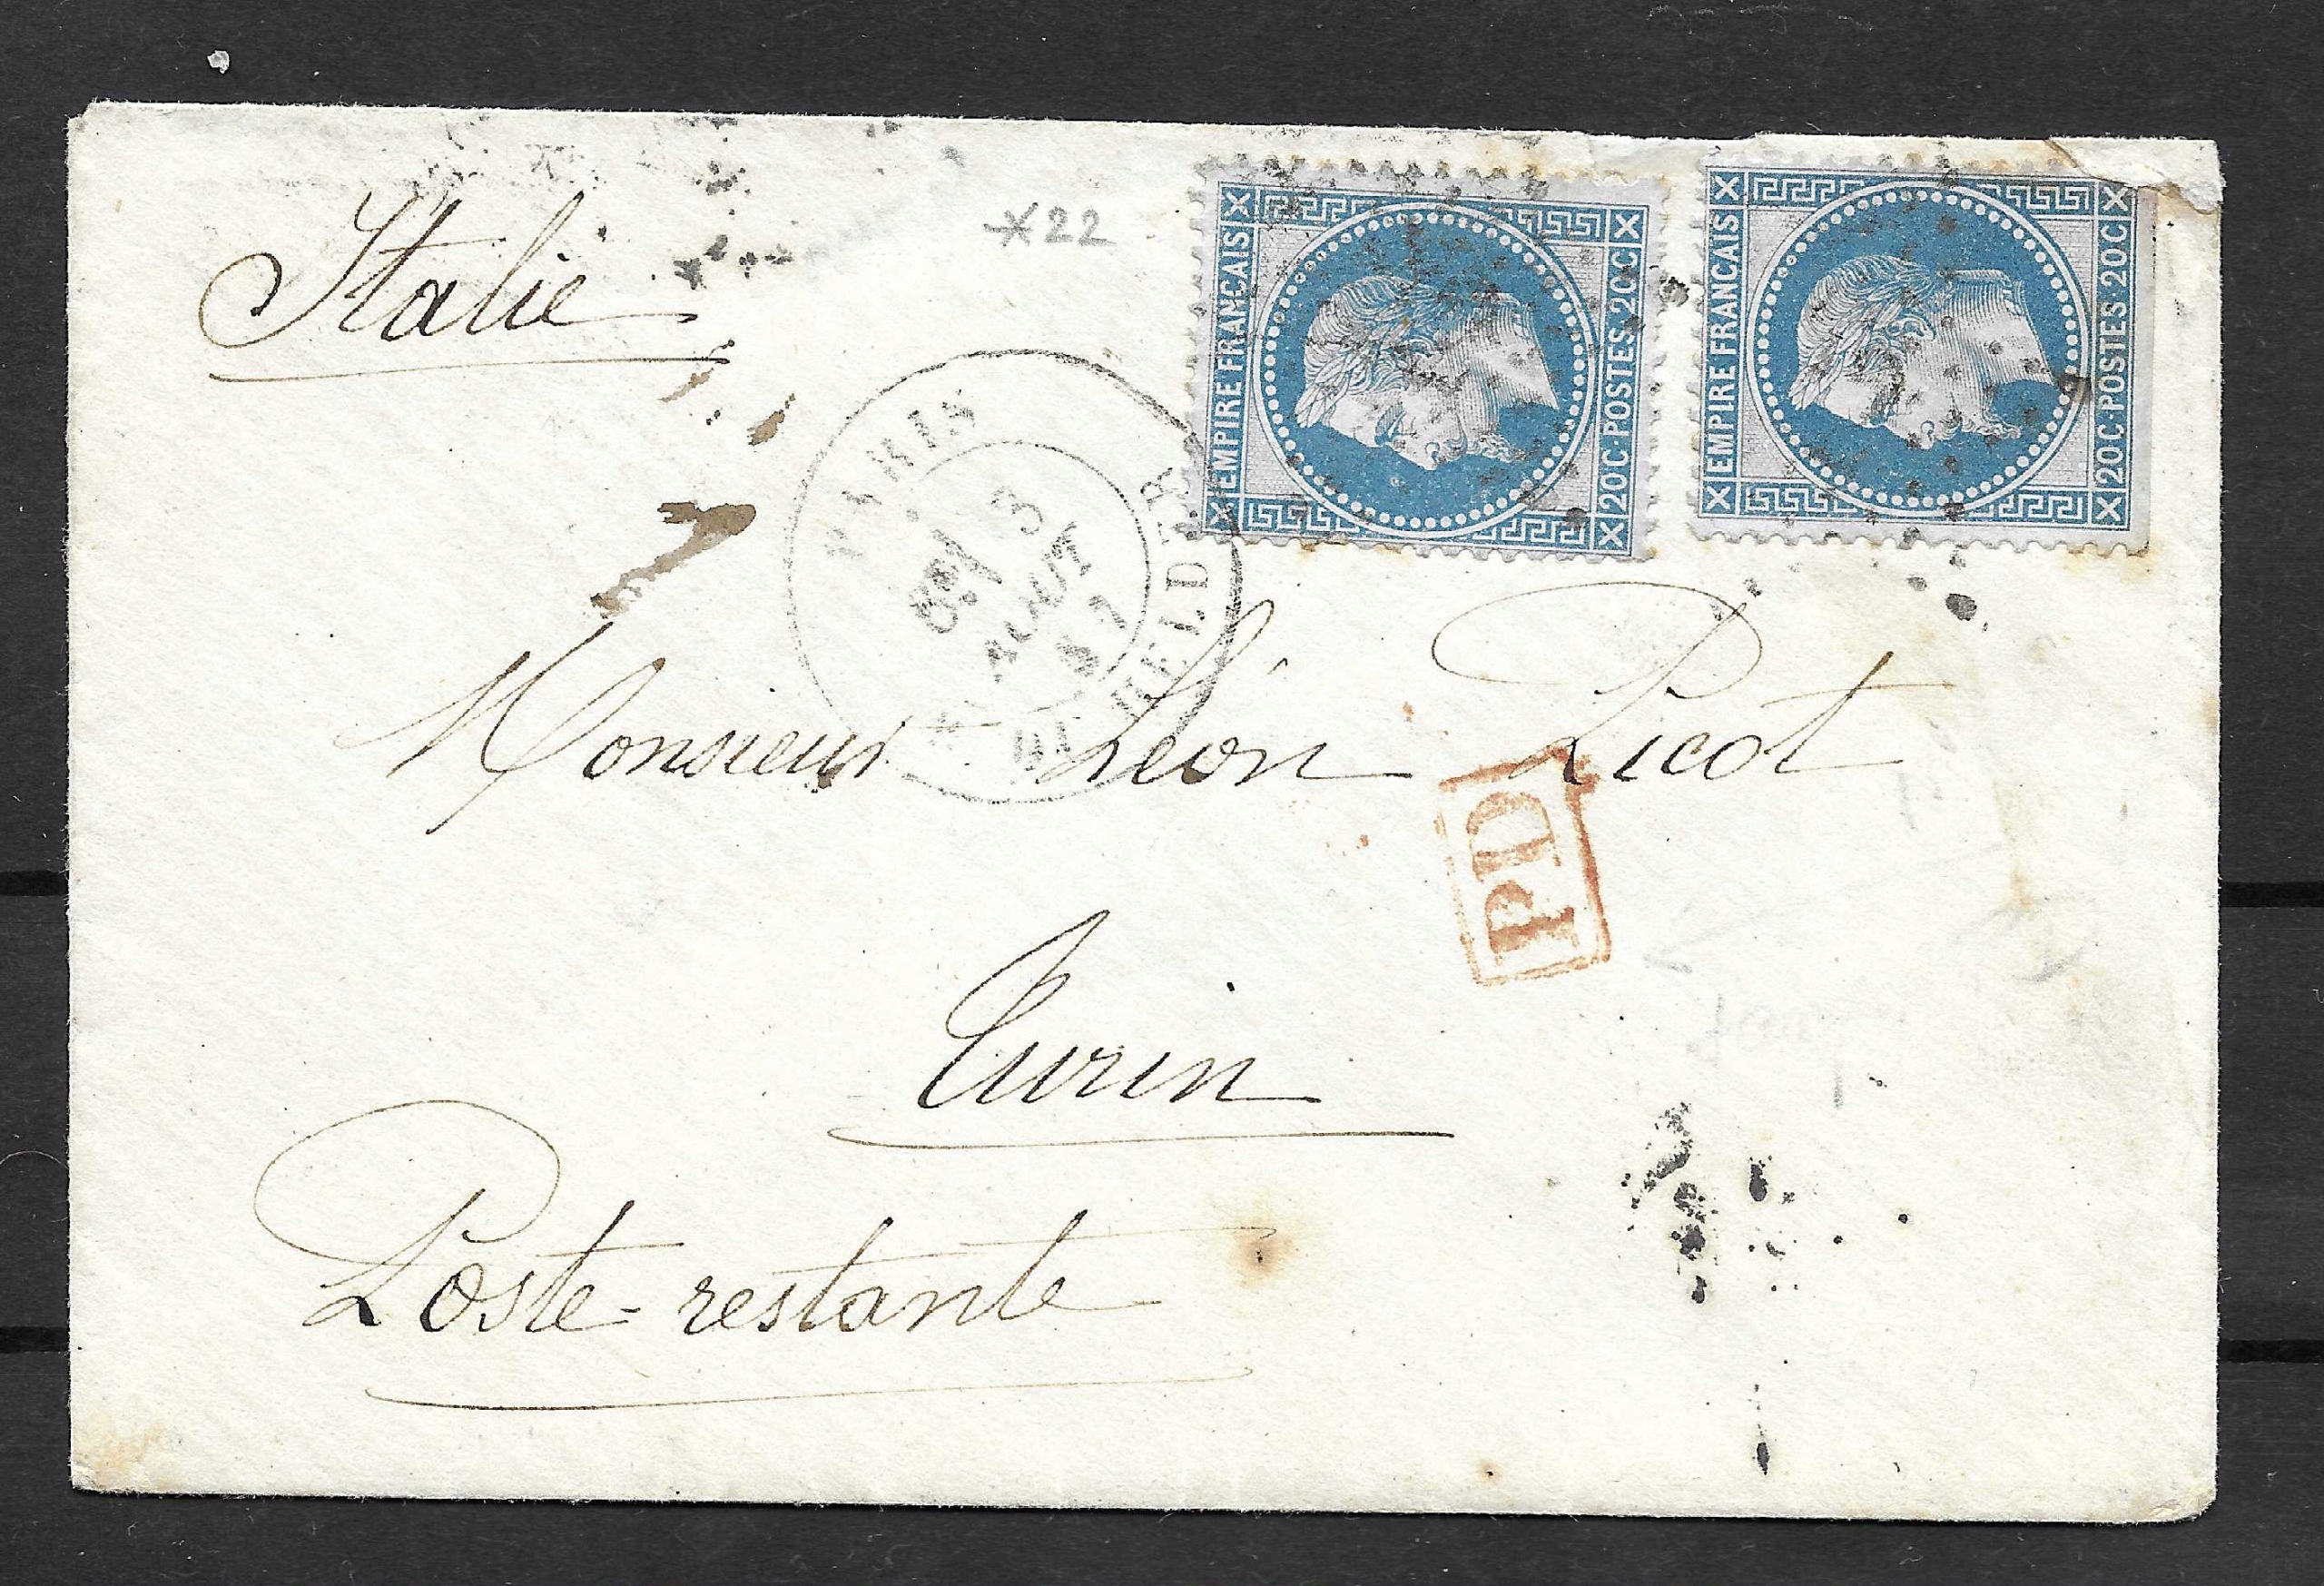 Italie
*22
EMPIRE FRANCAIS
20C·POSTES·20C
EMPIRE FRANCAIS
20C·POSTES 20C
PARIS
3
AOUT
HELDER
Monsieur Léon Picot
PD
Turin
Poste-restante